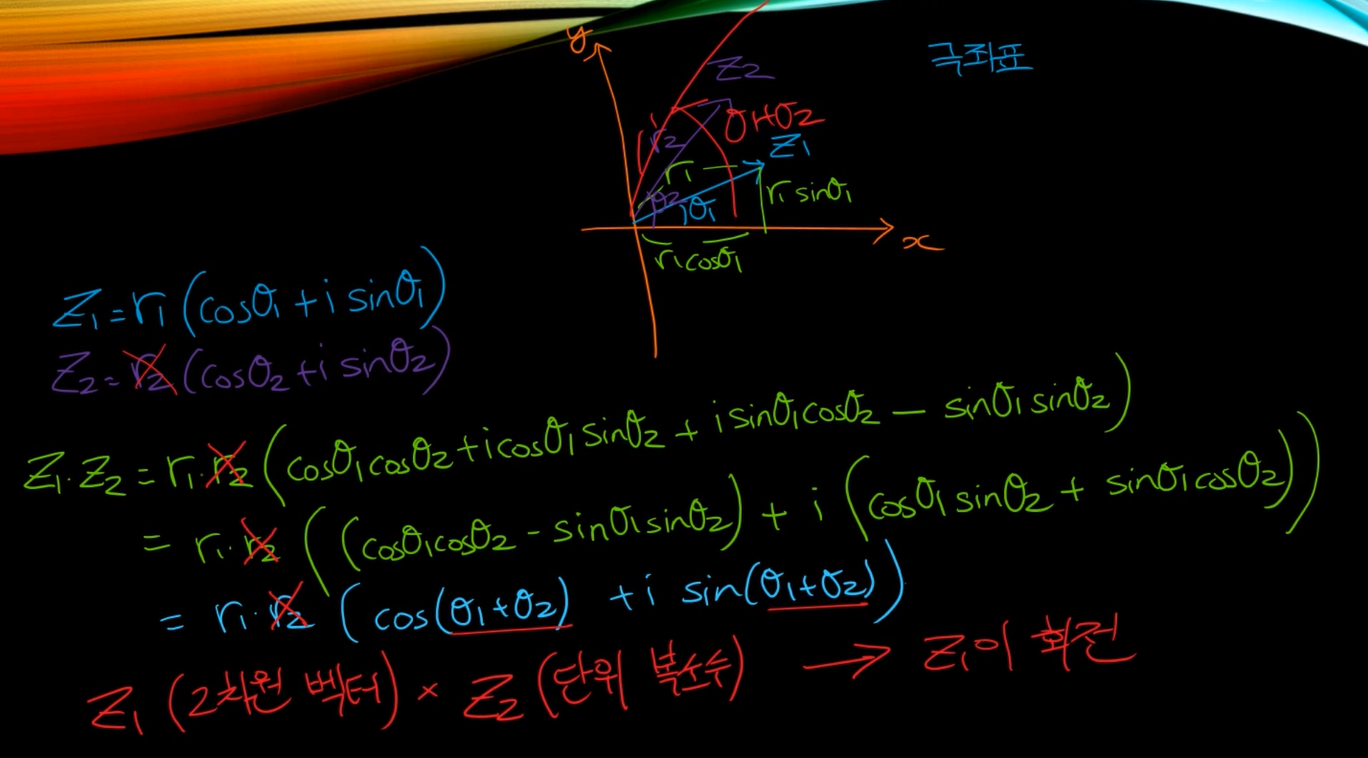 극좌표
y
Z2
θ1+θ2
r2
Z1
r1
r1 sinθ1
θ2
θ1
x
r1cosθ1
Z1=r1(cosθ1+i sinθ1)
Z2=r2(cosθ2+i sinθ2)
Z1·Z2=r1·r2(cosθ1cosθ2+icosθ1sinθ2+isinθ1cosθ2-sinθ1sinθ2)
=r1·r2((cosθ1cosθ2-sinθ1sinθ2)+i(cosθ1sinθ2+sinθ1cosθ2))
=r1·r2(cos(θ1+θ2)+i sin(θ1+θ2))
Z1(2차원 벡터)×Z2(단위 복소수) → Z1이 회전